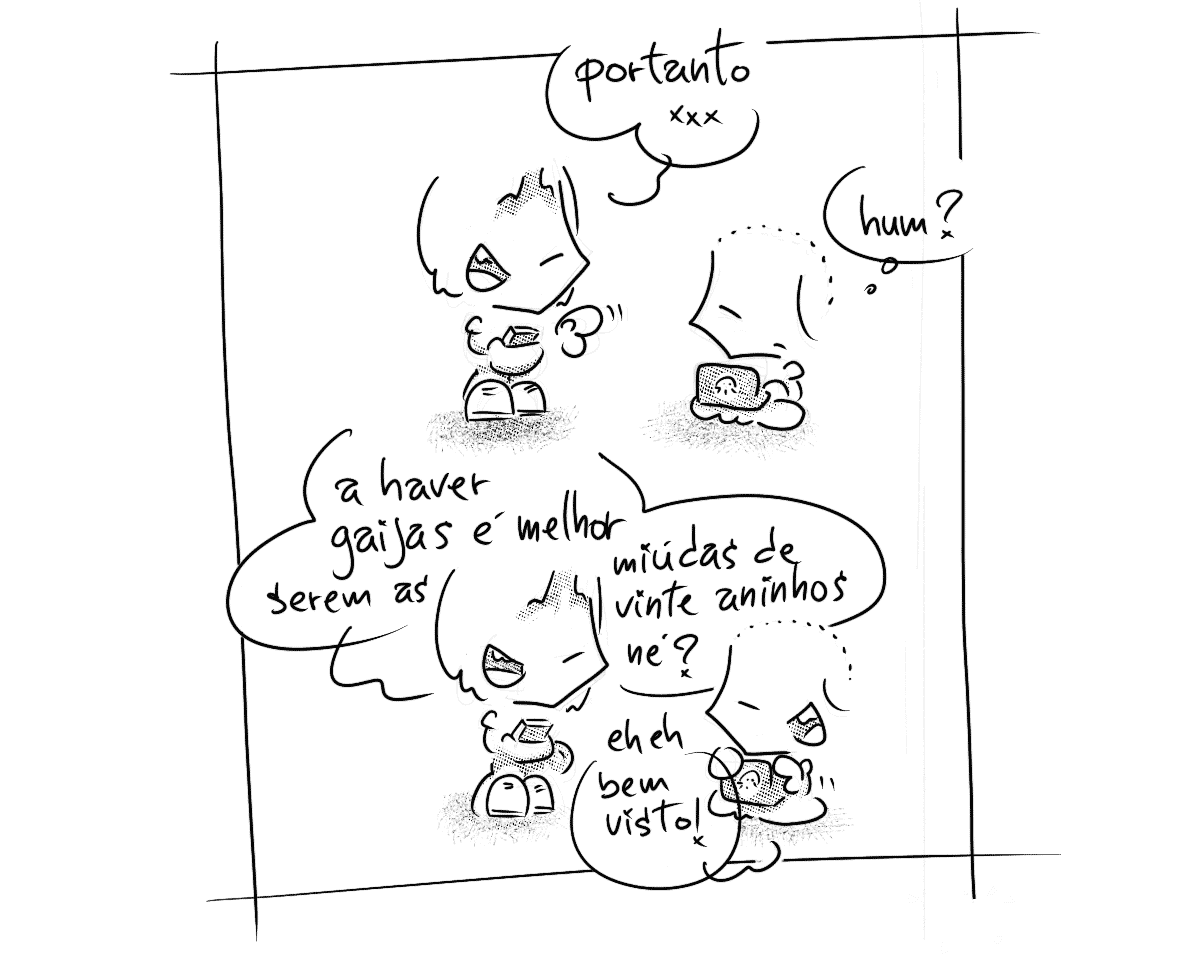 portanto
xxx
hum?
a haver
gaijas é melhor
serem as
miúdas de
vinte aninhos
né?
eh eh
bem
visto!